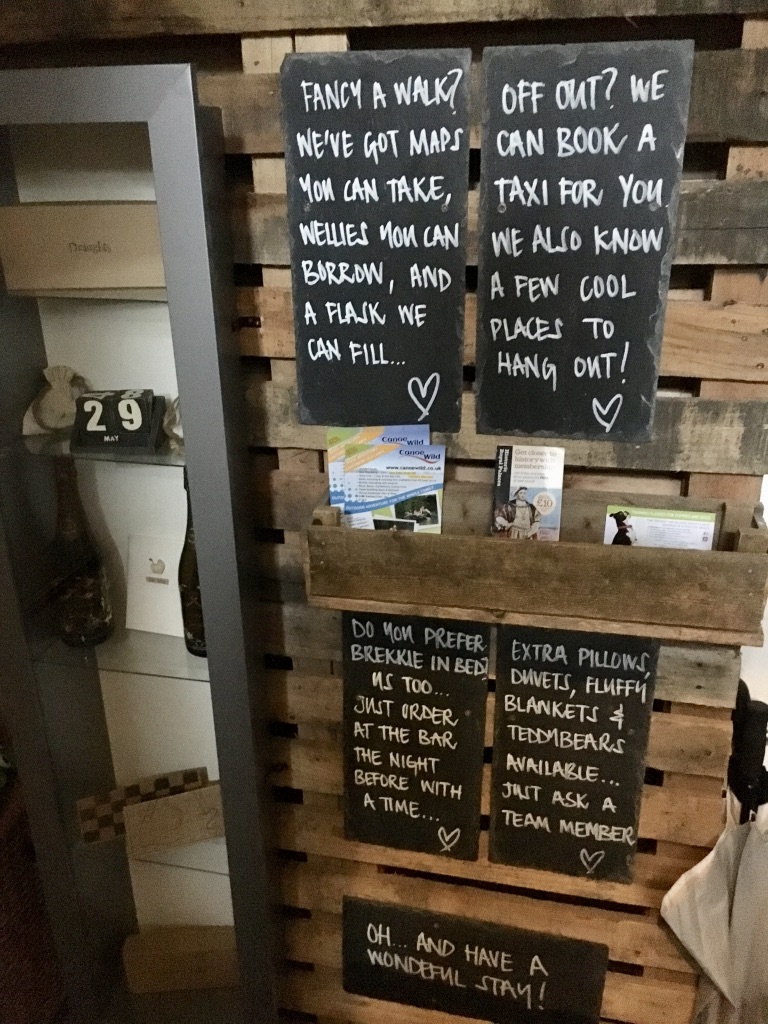 FANCY A WALK?
WE'VE GOT MAPS
YOU CAN TAKE,
WELLIES YOU CAN
BORROW, AND
A FLASK WE
CAN FILL...
OFF OUT? WE
CAN BOOK A
TAXI FOR YOU
WE ALSO KNOW
A FEW COOL
PLACES TO
HANG OUT!
Draughts
29
MAY
Canoe Wild
Canoe Wild
www.canoewild.co.uk
Historic Royal Palaces
Get closer to
history with
membership
£10
DO YOU PREFER
BREKKIE IN BED?
US TOO...
JUST ORDER
AT THE BAR
THE NIGHT
BEFORE WITH
A TIME...
EXTRA PILLOWS,
DUVETS, FLUFFY
BLANKETS &
TEDDYBEARS
AVAILABLE...
JUST ASK A
TEAM MEMBER
OH... AND HAVE A
WONDEFUL STAY!